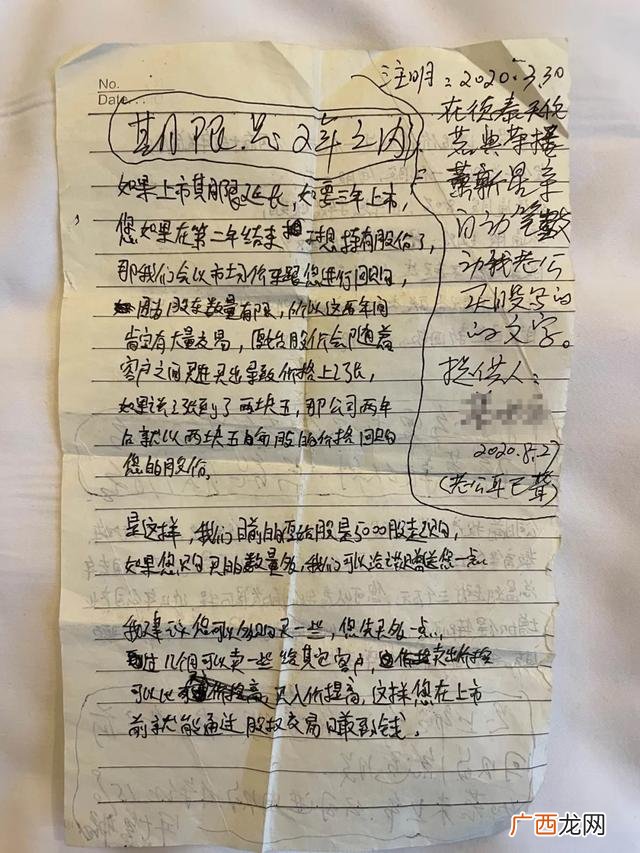 No.
Date
期限:总2年之内
如果上市期限延长，如要三年上市，
您如果在第二年结束 不想持有股份了，
那我们会以市场价来跟您进行回购，
股东数量有限，所以这两年间
肯定有大量交易，原始股价会随着
客户之间买进买出导致价格上涨，
如果说涨到了两块五，那公司两年
后就以两块五每股的价格回购
您的股份。
是这样，我们目前的原始股是5000股起购，
如果您认购的数量多，我们可以给您赠送您一点..
我建议您可以多购买一些，您先买多一点..
过几个月可以卖一些给其它客户，卖出价格
可以比 买入价提高，这样您在上市
前就能通过股权交易赚到钱。
注明：2020.3.30
在
董新星亲
动我老公
的文字。
提供人：
2020.8.27
(老公耳已聋)
广西龙网